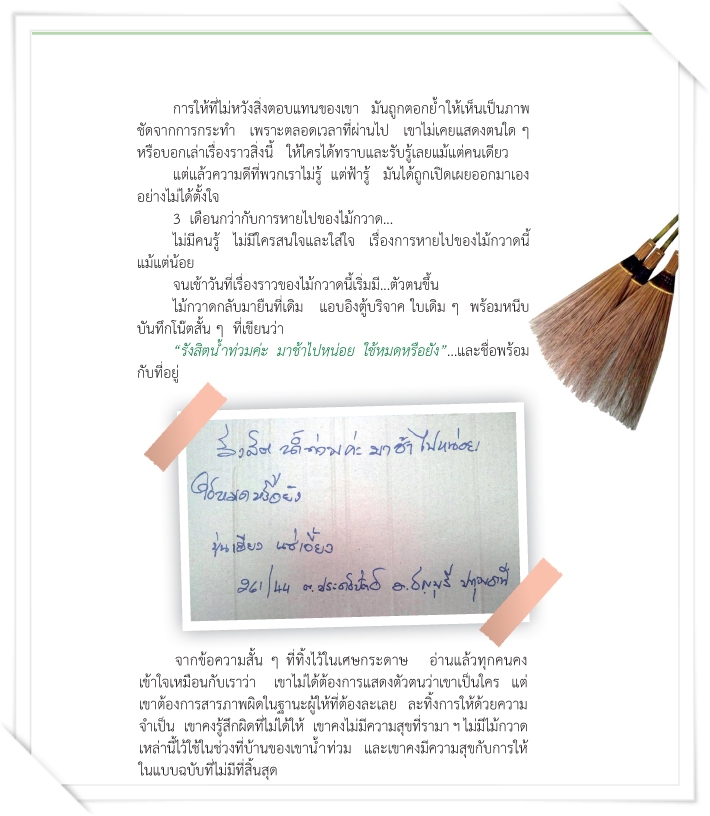 การให้ที่ไม่หวังสิ่งตอบแทนของเขา มันถูกตอกย้ำให้เห็นเป็นภาพ
ชัดจากการกระทำ เพราะตลอดเวลาที่ผ่านไป เขาไม่เคยแสดงตนใด ๆ
หรือบอกเล่าเรื่องราวสิ่งนี้ ให้ใครได้ทราบและรับรู้เลยแม้แต่คนเดียว
แต่แล้วความดีที่พวกเราไม่รู้ แต่ฟ้ารู้ มันได้ถูกเปิดเผยออกมาเอง
อย่างไม่ได้ตั้งใจ
3 เดือนกว่ากับการหายไปของไม้กวาด...
ไม่มีคนรู้ ไม่มีใครสนใจและใส่ใจ เรื่องการหายไปของไม้กวาดนี้
แม้แต่น้อย
จนเช้าวันที่เรื่องราวของไม้กวาดนี้เริ่มมี...ตัวตนขึ้น
ไม้กวาดกลับมายืนที่เดิม แอบอิงตู้บริจาค ใบเดิม ๆ พร้อมหนีบ
บันทึกโน๊ตสั้น ๆ ที่เขียนว่า
“รังสิตน้ำท่วมค่ะ มาช้าไปหน่อย ใช้หมดหรือยัง”...และชื่อพร้อม
กับที่อยู่
รังสิต น้ำท่วมค่ะ มาช้าไปหน่อย
ใช้หมดหรือยัง
แซ่เอี้ยง
261/44 ต.ประชาธิปัตย์ อ.ธัญบุรี ปทุมธานี
จากข้อความสั้น ๆ ที่ทิ้งไว้ในเศษกระดาษ อ่านแล้วทุกคนคง
เข้าใจเหมือนกับเราว่า เขาไม่ได้ต้องการแสดงตัวตนว่าเขาเป็นใคร แต่
เขาต้องการสารภาพผิดในฐานะผู้ให้ที่ต้องละเลย ละทิ้งการให้ด้วยความ
จำเป็น เขาคงรู้สึกผิดที่ไม่ได้ให้ เขาคงไม่มีความสุขที่รามา ฯ ไม่มีไม้กวาด
เหล่านี้ไว้ใช้ในช่วงที่บ้านของเขาน้ำท่วม และเขาคงมีความสุขกับการให้
ในแบบฉบับที่ไม่มีที่สิ้นสุด